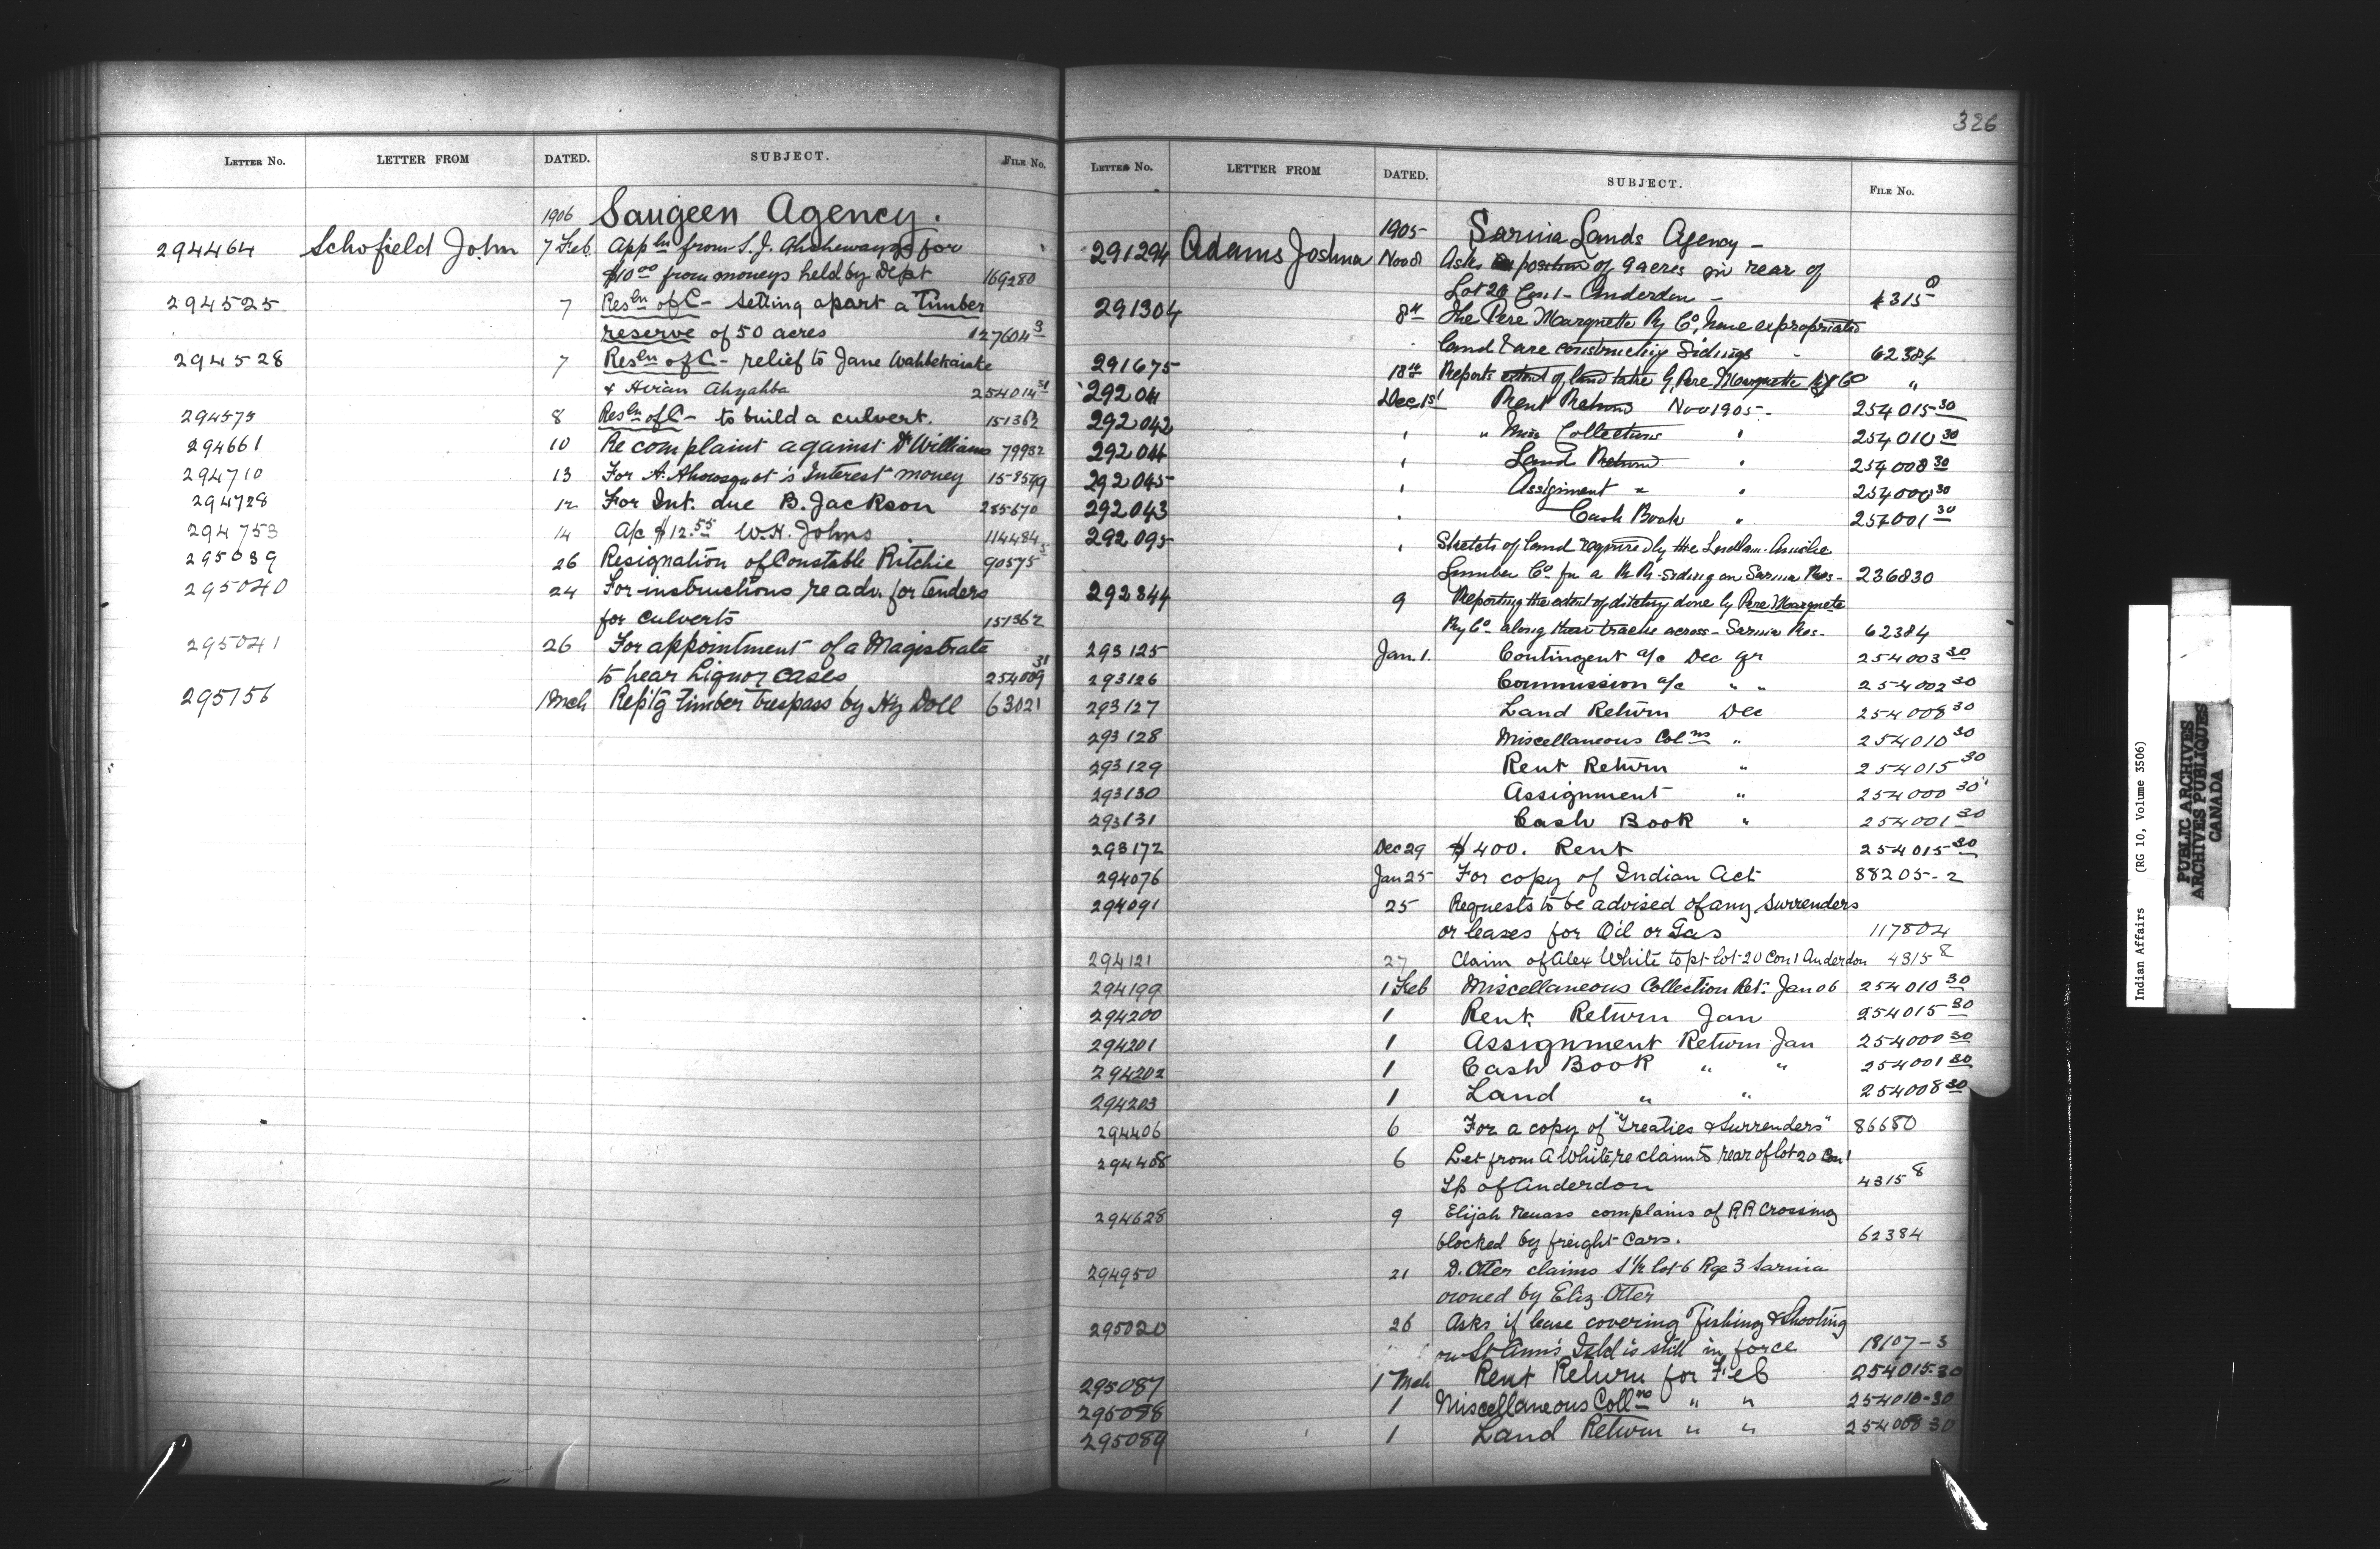 326
LETTER NO. LETTER FROM DATED. SUBJECT. FILE NO.
1906 Saugeen Agency.
294464 Schofield John 7 Feb Appln from S. J. for
$10.00 from moneys held by Dept 169280
294525 7 Resln of C- setting apart a Timber
reserve of 50 acres 127604 3
294528 7 Resln of C- relief to Jane
& 254014 31
294575 8 Resln of C- to build a culvert. 151362
294661 10 Re complaint against Dr Williams 79932
294710 13 For A. Interest money 158599
294728 12 For Int. due B. Jackson 285670
294753 14 A/c $12.55 W. H. Johns 114484
295039 26 Resignation of Constable Ritchie 90575 5
295040 24 For instructions re adv. for tenders
for culverts 151362
295041 26 For appointment of a Magistrate
to hear Liquor cases 254009 31
295156 1 Mch Rep'tg timber trespass by Hy Doll 63021
LETTER NO. LETTER FROM DATED. SUBJECT. FILE NO.
1905 Sarnia Lands Agency -
291294 Adams Joshua Nov 8 Asks position of 9 acres in rear of
Lot 20 Con. 1 - Anderdon - 4315 8
291304 8th The Pere Marquette Ry Co, have expropriated
land & are constructing Sidings - 62384
291675 18th Reports extent of land taken by Pere Marquette Ry Co "
292041 Dec 1st Rent Return Nov 1905 - 254015 30
292042 " Misc Collections " 254010 30
292044 Land Return " 254008 30
292045 Assignment " " 254000 30
292043 Cash Book " 254001 30
292095 Sketch of land required by the
Lumber Co. for a R R. siding on Sarnia Res - 236830
292844 9 Reporting the extent of ditching done by Pere Marquete
Ry Co. along their tracks across - Sarnia Res - 62384
293125 Jan. 1. Contingent a/c Dec qr 254003 30
293126 Commission a/c " " 254002 30
293127 Land Return Dec 254008 30
293128 Miscellaneous Colns " 254010 30
293129 Rent Return " 254015 30
293130 Assignment " 254000 30
293131 Cash Book " 254001 30
293172 Dec 29 $400. Rent 254015 30
294076 Jan 25 For copy of Indian Act 88205-2
294091 25 Requests to be advised of any surrenders
or leases for Oil or Gas 117804
294121 27 Claim of Alex White to pt lot 20 Con 1 Anderdon 4315 8
294199 1 Feb Miscellaneous Collection Ret. Jan 06 254010 30
294200 1 Rent Return Jan 254015 30
294201 1 Assignment Return Jan 254000 30
294202 1 Cash Book " " 254001 30
294203 1 Land " " 254008 30
294406 6 For a copy of "Treaties & Surrenders" 86680
294408 6 Let from A White re claim to rear of lot 20 Con 1
Tp of Anderdon 4315 8
294628 9 Elijah complains of R R Crossing
blocked by freight cars. 62384
294950 21 D. Otter claims S 1/2 lot 6 Rge 3 Sarnia
owned by Eliz. Otter
295020 26 Asks if lease covering Fishing & Shooting
on St Ann's Isld is still in force 18107-3
295087 1 Mch Rent Return for Feb 254015-30
295088 1 Miscellaneous Collns " " 254010-30
295089 1 Land Return " " 254008 30
Indian Affairs (RG 10, Volume 3506)
PUBLIC ARCHIVES
ARCHIVES PUBLIQUES
CANADA